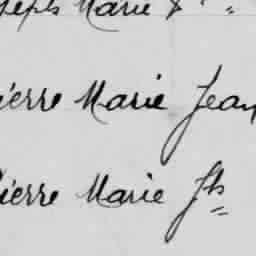 Marie
ierre Marie Jean
ierre Marie Jh